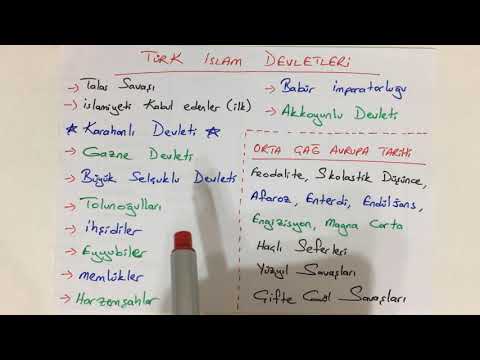 TÜRK İSLAM DEVLETLERİ
→ Talas Savaşı
→ islamiyeti Kabul edenler (ilk)
★ Karahanlı Devleti ★
→ Gazne Devleti
→ Büyük Selçuklu Devleti
→ Tolunoğulları
→ ihşidiler
→ Eyyubiler
→ memlükler
→ Harzemşahlar
→ Babür imparatorluğu
→ Akkoyunlu Devleti
ORTA ÇAĞ AVRUPA TARİHİ
Feodalite, Skolastik Düşünce,
Afaroz, Enterdi, Endülüjans,
Engizisyon, Magna Carta
Haçlı Seferleri
Yüzyıl Savaşları
Çifte Gül Savaşları